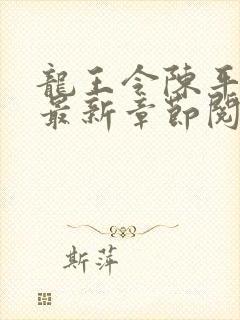 龍王令陳平
最新章節閱
斯萍